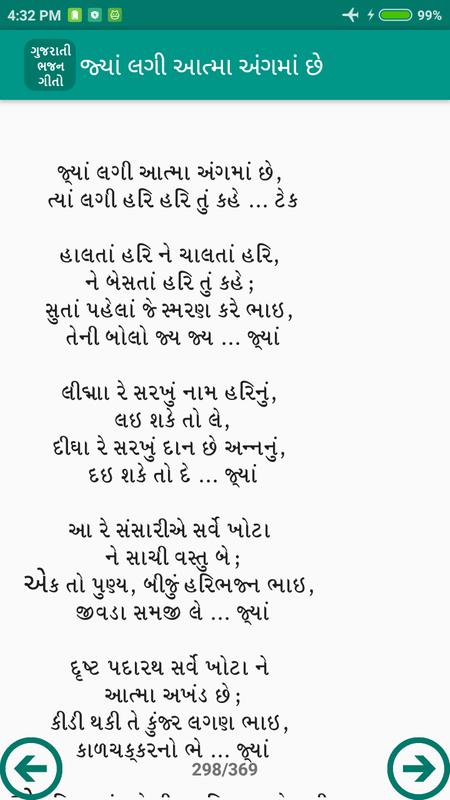 4:32 PM
99%
ગુજરાતી
ભજન
ગીતો
જ્યાં લગી આત્મા અંગમાં છે
જ્યાં લગી આત્મા અંગમાં છે,
ત્યાં લગી હરિ હરિ તું કહે ... ટેક
હાલતાં હરિ ને ચાલતાં હરિ,
ને બેસતાં હરિ તું કહે ;
સુતાં પહેલાં જે સ્મરણ કરે ભાઇ,
તેની બોલો જ્ય જ્ય ... જ્યાં
લીધ્રાા રે સરખું નામ હરિનું,
લઇ શકે તો લે,
દીધા રે સરખું દાન છે અન્નનું,
દઇ શકે તો દે ... જ્યાં
આ રે સંસારીએ સર્વે ખોટા
ને સાચી વસ્તુ બે ;
એક તો પુણ્ય, બીજું હરિભજ્ન ભાઇ,
જીવડા સમજી લે ... જ્યાં
દૃષ્ટ પદારથ સર્વે ખોટા ને
આત્મા અખંડ છે ;
કીડી થકી તે કુંજ્ર લગણ ભાઇ,
કાળચક્કરનો ભે ... જ્યાં
298/369